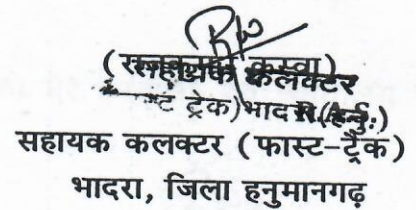 (राजकुमार कस्वा)
सहायक कलक्टर
ट्रेक) भादरा
सहायक कलक्टर (फास्ट-ट्रैक)
भादरा, जिला हनुमानगढ़